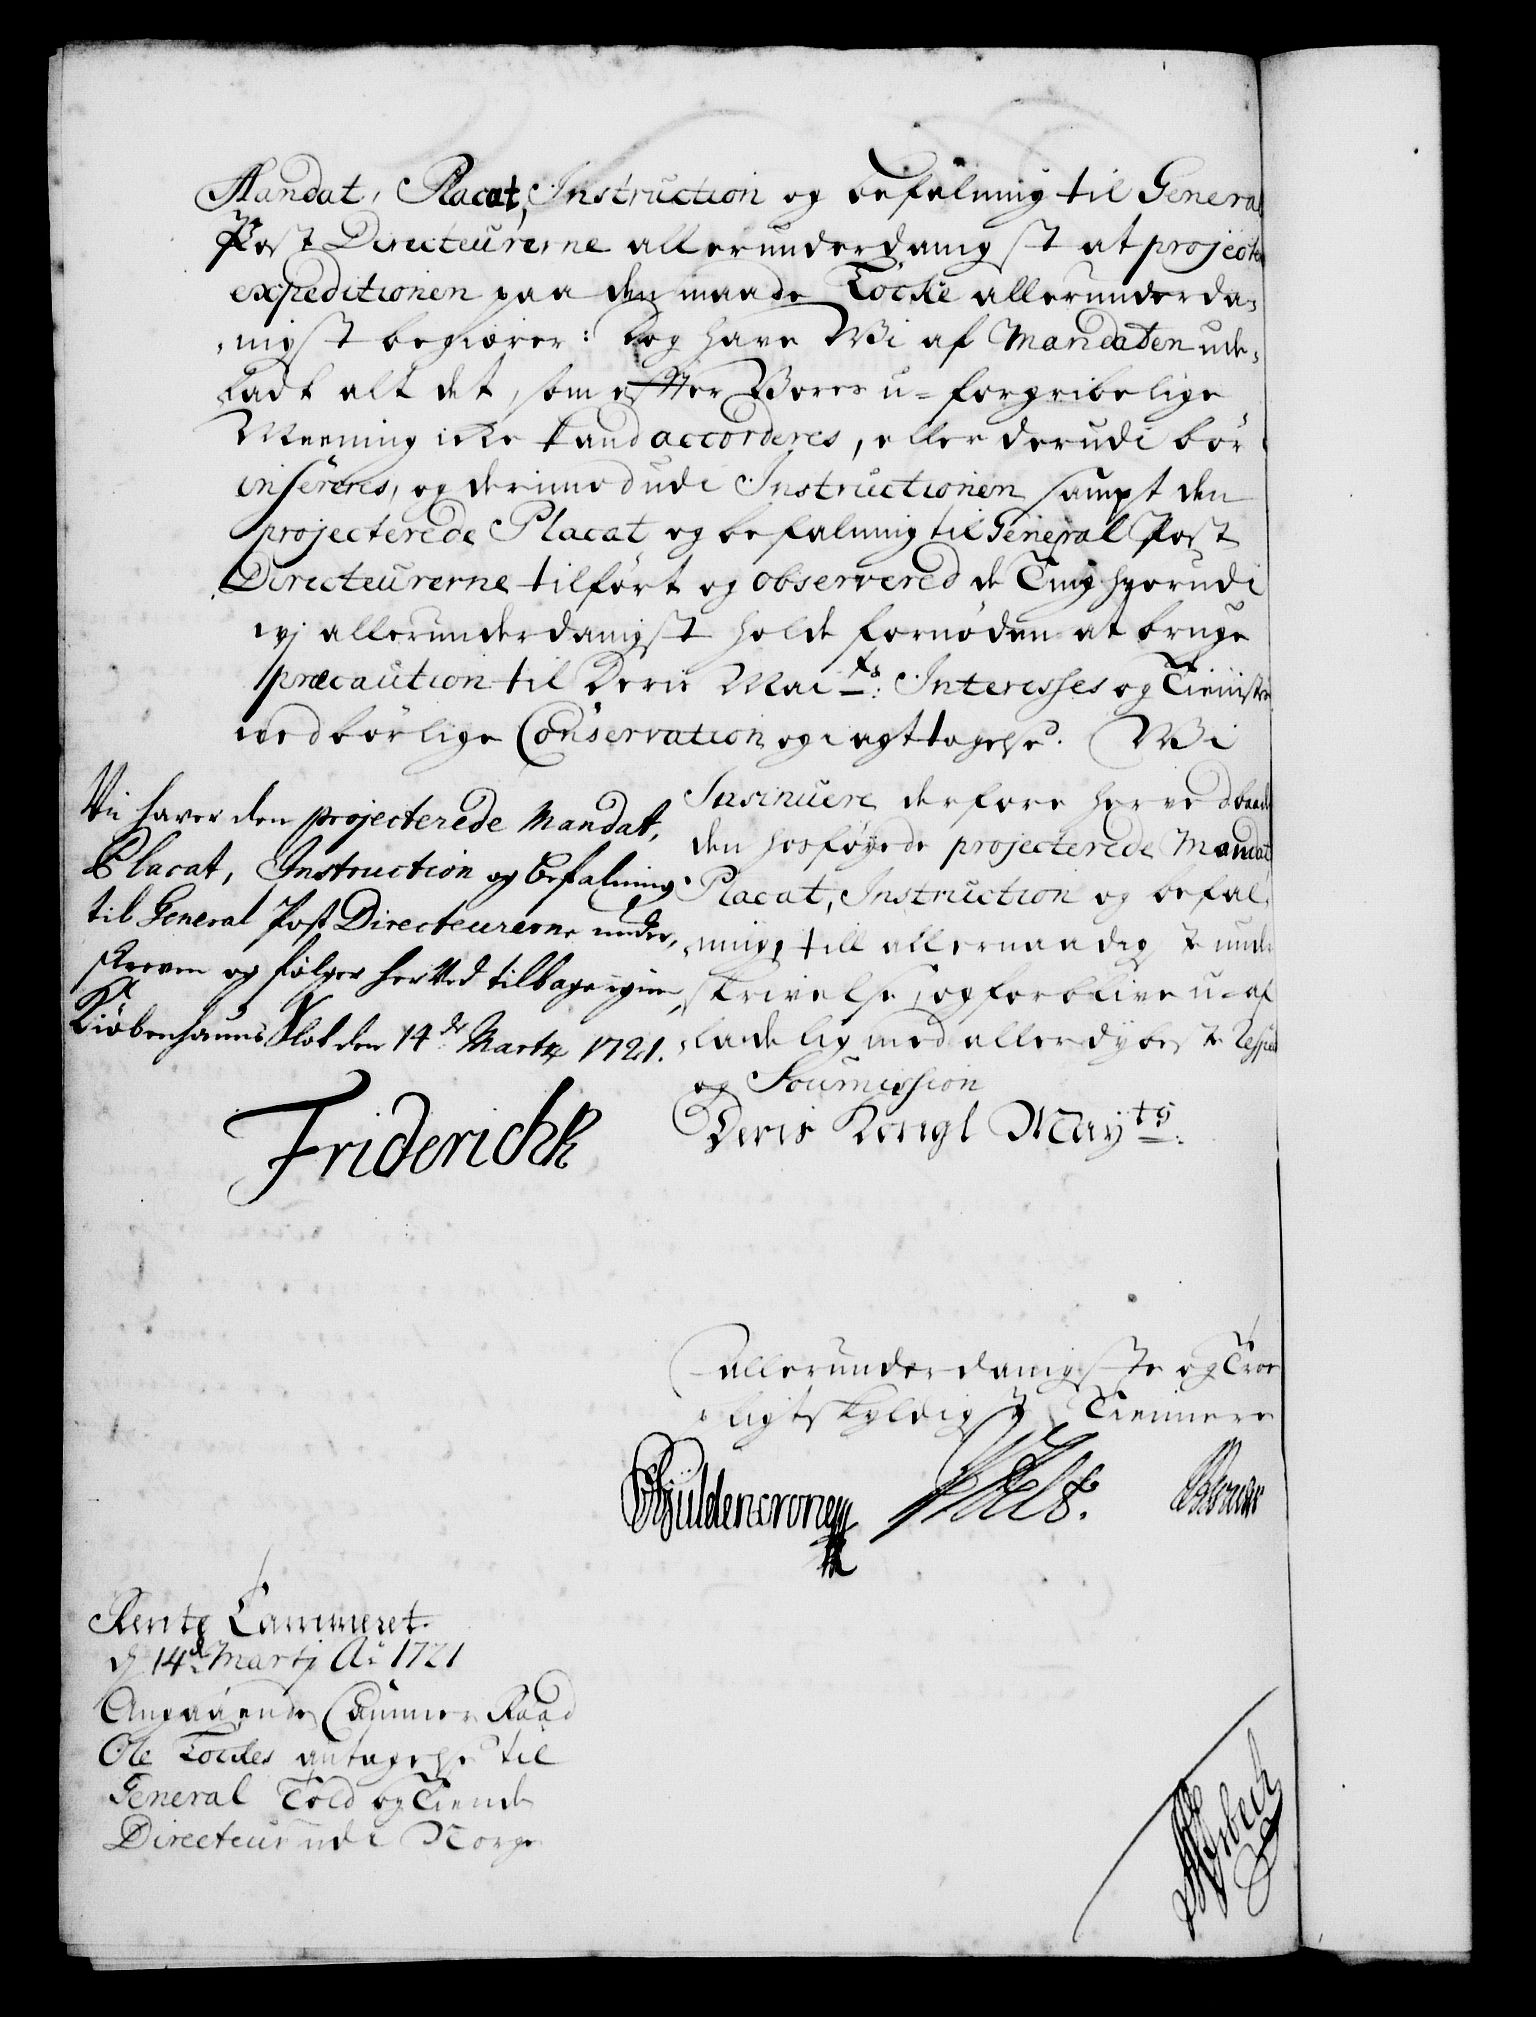 Mandat, Placat, Instruction og befalning til General
Post Directeurerne allerunderdanigst at projectere
expeditionen paa den maade Tocke allerunderda-
nigst begiærer: Dog have Wi af Mandaten ude-
ladt alt det, som efter Vores u-forgribelige
Meening icke kand accorderes, eller derudi bør
insereres, og derimod udi Instructionen sampt den
projecterede Placat og befalning til General Post
Directeurerne tilført og observered de Ting hvorudi
wj allerunderdanigst holde fornøden at bruge
præcaution til Deris Maits: Interesses og Tienistes
vedbørlige Conservation og iagttagelse. Wi
Insinuere derfore herved baade
den hosføyede projecterede Mandat
Placat, Instruction og befal-
ning, till allernaadigst under
skrivelse, og forblive u-af
ladelig med allerdybeste Respect
og Soumission
Deris Kongl Mayts:
Vii haver den projecterede Mandat,
Placat, Instruction og befalning
til General Post Directeurerne under,
skreven og følger her Ved tilbage igien,
Kiøbenhauns Slot den 14de Martz 1721.
Friderich R
allerunderdanigste og Troe
ligtskyldigste Tiennere
Guldencrone
Rente Cammeret
d 14de Martj Ao 1721
Angaaende Cammer Raad
Ole Tockes antagelse til
General Told og Tiende
Directeur udi Norge